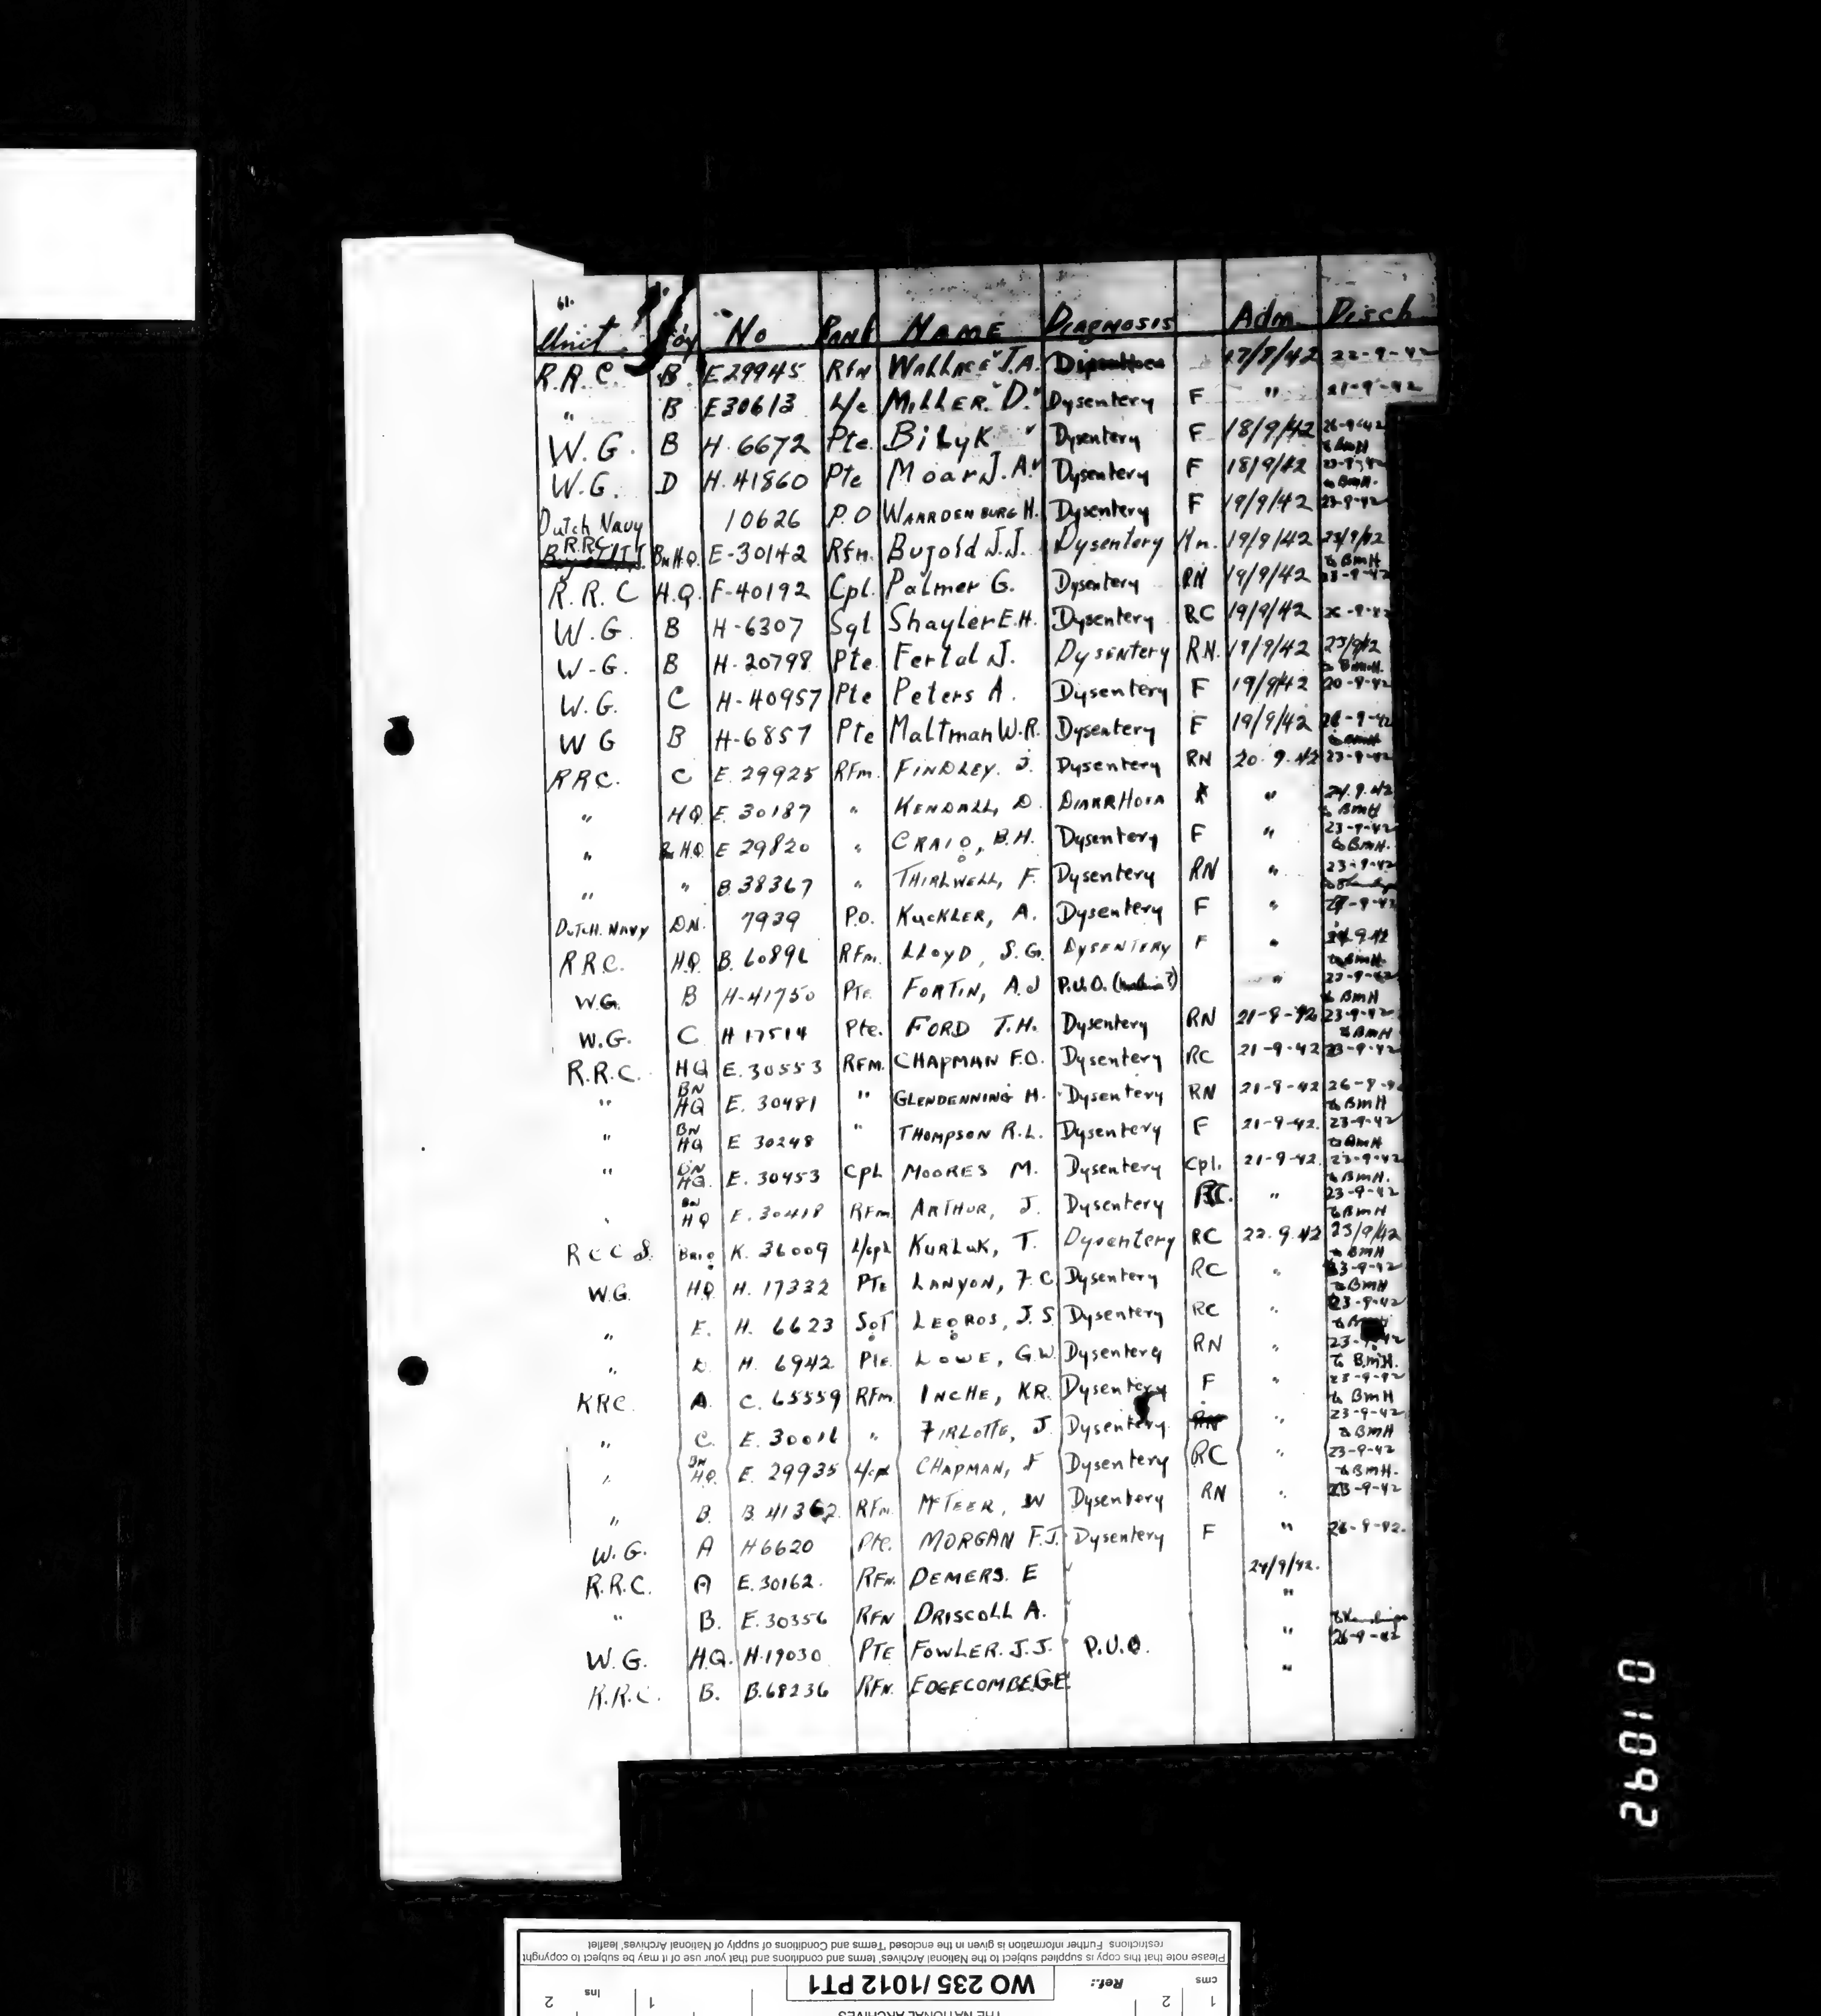 61.
Unit Coy No Rank NAME DIAGNOSIS Adm. Disch
R.R.C. B. E29945 Rfn WALLACE J.A. 17/9/42 22-9-42
" B E30613 L/c MILLER. D. Dysentery F " 21-9-42
W.G. B H.6672 Pte. BilyK Dysentery F 18/9/42 26-9-42 to BmH
W.G. D H.41860 Pte Moar J.A. Dysentery F 18/9/42 23-9-42 to BmH.
Dutch Navy 10626 P.O WAARDENBURG H. Dysentery F 19/9/42 23-9-42
R.R.C. Bn H.Q. E-30142 Rfn. Bujold J.J. Dysentery 19/9/42 23/9/42 to BmH
R.R.C H.Q. F-40192 Cpl. Palmer G. Dysentery RN 19/9/42 23-9-42
W.G. B H-6307 Sgt Shayler E.H. Dysentery RC 19/9/42
W-G. B H-20798 Pte Fertal J. Dysentery R.N. 19/9/42 23/9/42 to BmH.
W.G. C H-40957 Pte Peters A. Dysentery F 19/9/42 20-9-42
W G B H-6857 Pte Maltman W.R. Dysentery F 19/9/42 26-9-42 to BmH
RRC. C E.29925 RFm. FINDLEY. J. Dysentery RN 20.9.42 23-9-42
" HQ E.30187 " KENDALL, D. DIARRHOEA " 24.9.42 to BmH
" Bn H.Q. E 29820 " CRAIG, B.H. Dysentery F " 23-9-42 to BmH.
" " B.38367 " THIRLWELL, F. Dysentery RN " 23-9-42
DUTCH. NAVY D.N. 7939 P.O. KUCKLER, A. Dysentery F " 27-9-42
RRC. H.Q. B.60896 RFm. LLOYD, S.G. DYSENTERY F " 24.9.42 to BmH.
W.G. B H-41750 Pte. FORTIN, A.J P.U.O. " 23-9-42 to BmH
W.G. C H 17514 Pte. FORD T.H. Dysentery RN 21-9-42 23-9-42 to BmH
R.R.C. HQ E.30553 RFM. CHAPMAN F.O. Dysentery RC 21-9-42 23-9-42
" BN HQ E.30481 " GLENDENNING H. Dysentery RN 21-9-42 26-9-42 to BmH
" BN HQ E 30248 " THOMPSON R.L. Dysentery F 21-9-42. 23-9-42 to BmH
" BN HQ. E.30453 Cpl MOORES M. Dysentery Cpl. 21-9-42. 23-9-42 to BmH.
" BN HQ E.30418 RFm ARTHUR, J. Dysentery RC. " 23-9-42 to BmH
R C C S. BRIG K.36009 L/cpl KURLUK, T. Dysentery RC 22.9.42 23/9/42 to BmH
W.G. HQ H.17332 PTE LANYON, F.C Dysentery RC " 23-9-42 to BmH
" E. H.6623 SGT LEGROS, J.S. Dysentery RC " 23-9-42
" D. H.6942 Pte. LOWE, G.W. Dysentery RN " 23-9-42 to BmH.
RRC. A. C.65559 RFm INCHE, KR. Dysentery F " 23-9-42 to BmH
" C. E.30016 " FIRLOTTE, J. Dysentery " 23-9-42 to BmH
" BN HQ. E.29935 L/cpl CHAPMAN, F Dysentery RC " 23-9-42 to BmH.
" B. B.41362 RFm McTEER, W Dysentery RN " 23-9-42
W.G. A H6620 Pte. MORGAN F.J. Dysentery F " 26-9-42.
R.R.C. A E.30162. RFN. DEMERS. E 24/9/42.
" B. E.30356 RFN DRISCOLL A. "
W.G. H.Q. H.19030 PTE FOWLER. J.J. P.U.O. " 26-9-42
R.R.C. B. B.68236 RFN. EDGECOMBE G.E. "
0182
Please note that this copy is supplied subject to the National Archives' terms and conditions and that your use of it may be subject to copyright
restrictions. Further information is given in the enclosed 'Terms and Conditions of supply of National Archives' leaflet
cms 1 2 Ref.: WO 235/1012 PT1 1 ins 2
THE NATIONAL ARCHIVES